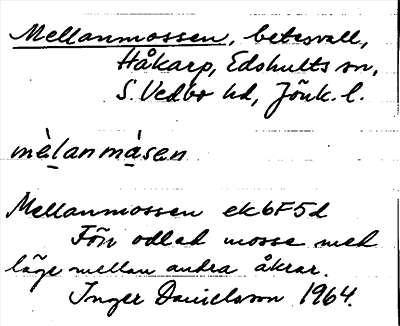 Mellanmossen, betesvall,
Håkarp, Edshults sn,
S. Vedbo hd, Jönk. l.
mèlanmåsen
Mellanmossen ek6F5d
Förr odlad mosse med
läge mellan andra åkrar.
Inger Danielsson 1964.